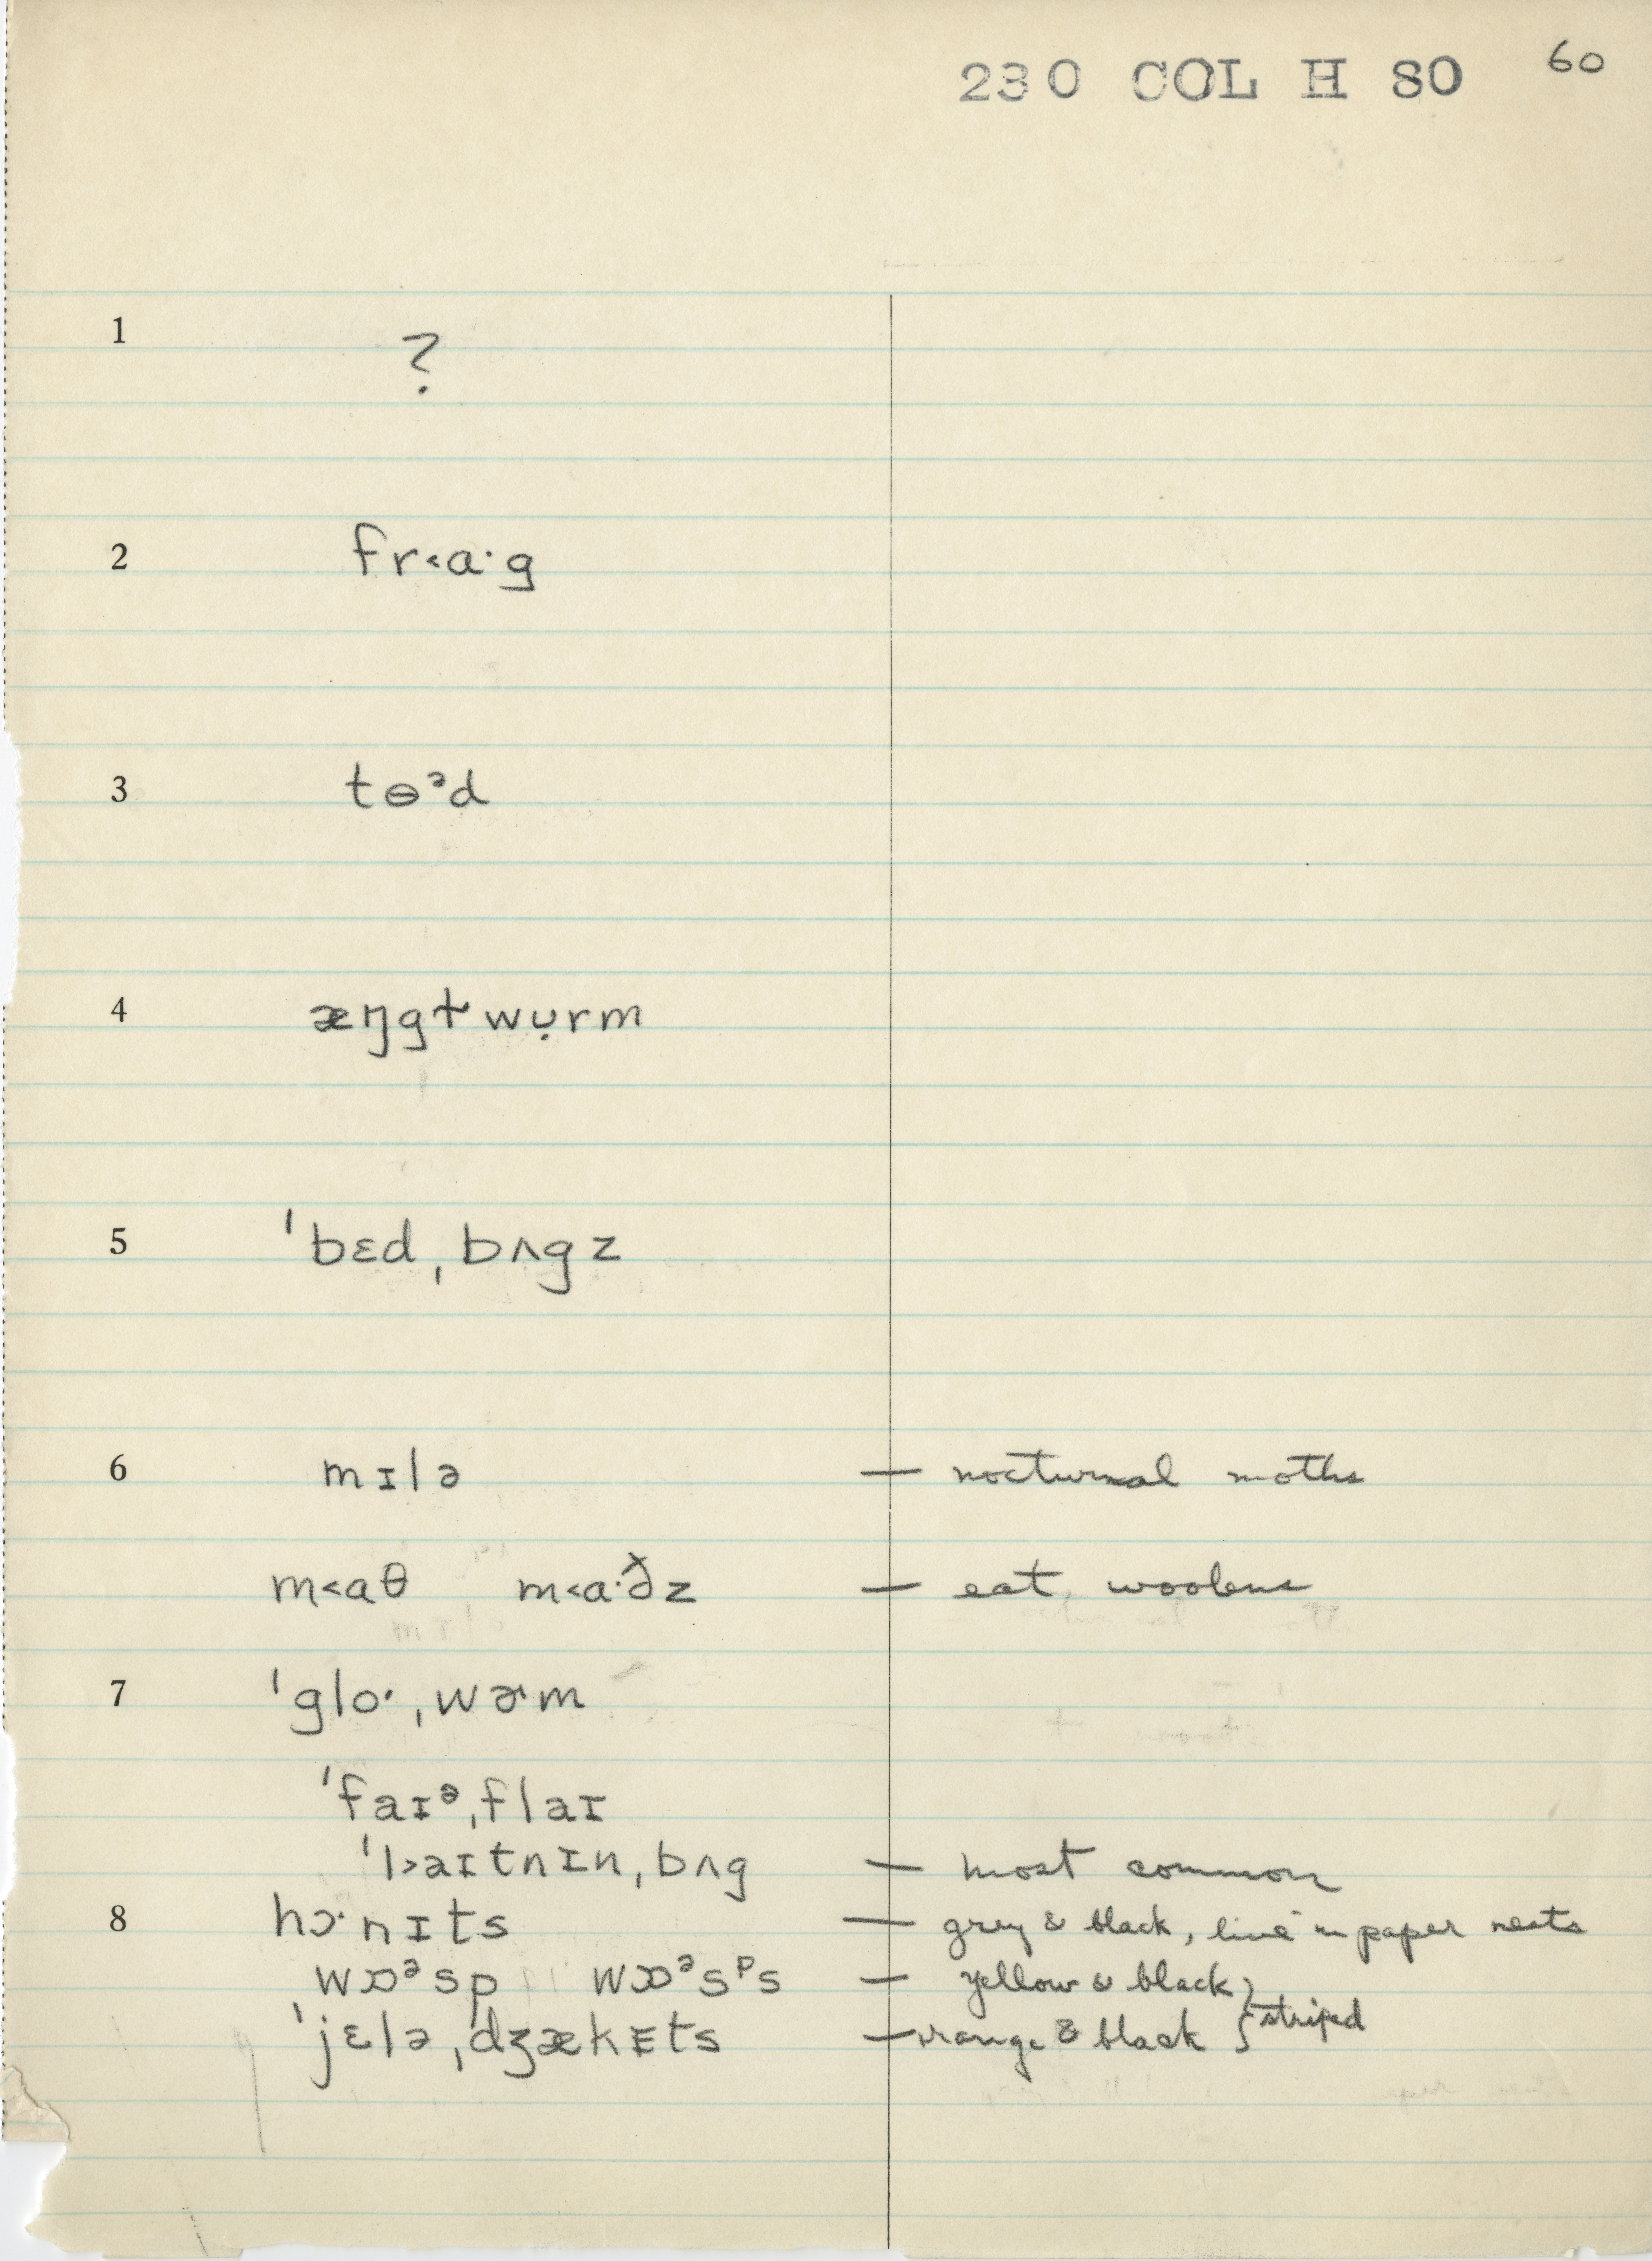 230 COL H 80 60
1 ?
2 fr˂ɑ·g
3 tɵᵊd
4 æŋgɫwụrm
5 ˈbɛd ˌbʌgz
6 mɪlə — nocturnal moths
m˂ɑθ m˂ɑ·ð̌z — eat woolens
7 ˈglo· ˌwɚm
ˈfaɪᵊ ˌflaɪ
ˈl˃aɪtnɪn ˌbʌg — most common
8 hɔ·nɪts — grey & black, live in paper nests
wɒᵊsp wɒᵊsᵖs — yellow & black
ˈjɛlə ˌdʒækɪts — orange & black } striped